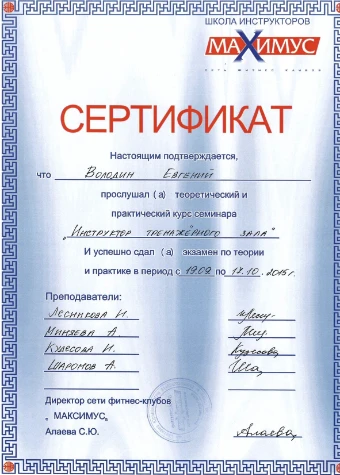 ШКОЛА ИНСТРУКТОРОВ
МАХИМУС
СЕТЬ ФИТНЕС КЛУБОВ
СЕРТИФИКАТ
Настоящим подтверждается,
что Володин Евгений
прослушал (а) теоретический и
практический курс семинара
"Инструктор тренажёрного зала"
И успешно сдал (а) экзамен по теории
и практике в период с 19.09 по 17.10.2015г.
Преподаватели:
Лесникова И.
Миняева А.
Кудесова И.
Шаронов А.
Директор сети фитнес-клубов
„ МАКСИМУС„
Алаева С.Ю. Алаева